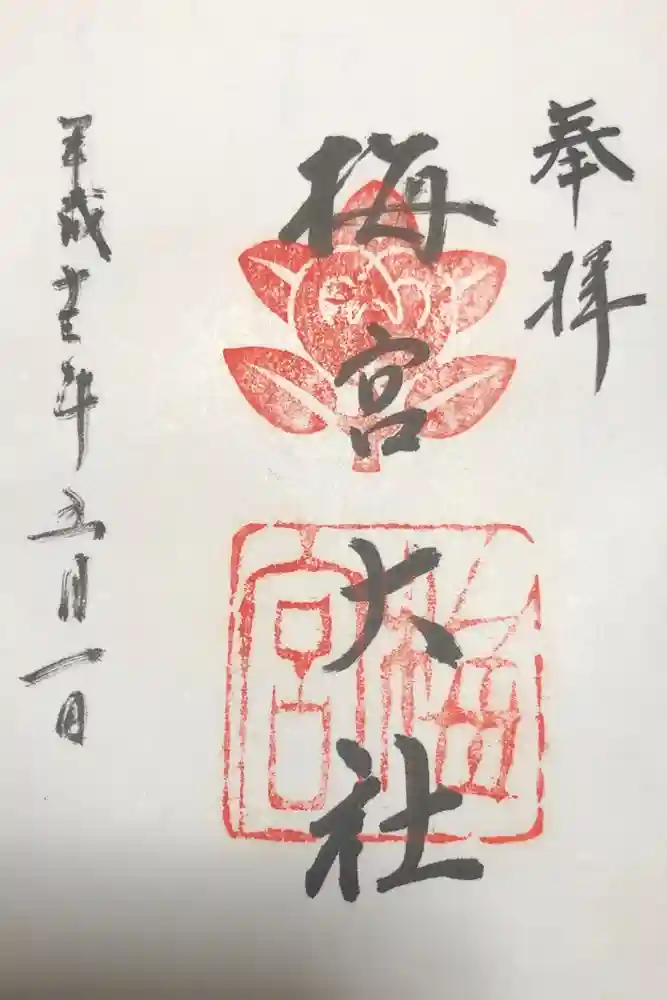 奉拝
梅宮大社
平成廿三年五月一日
梅宮